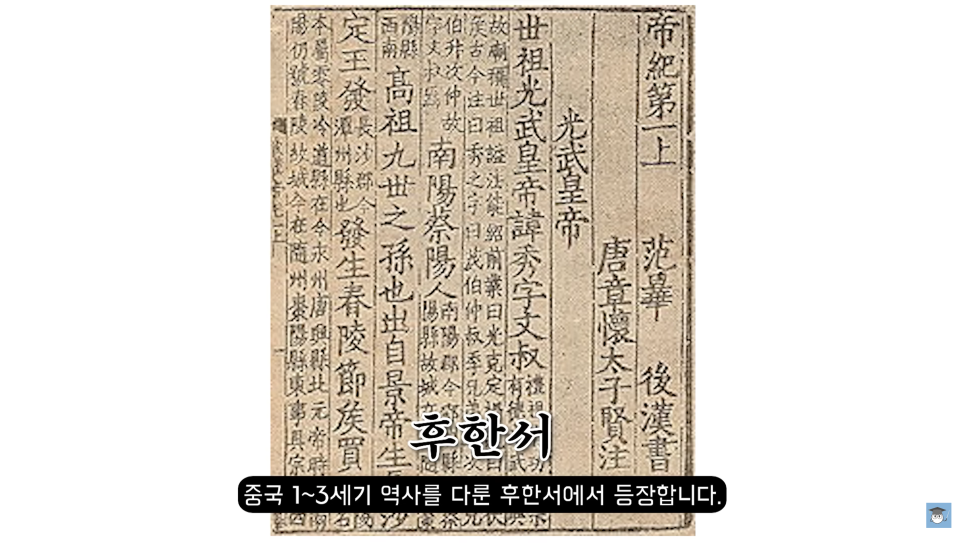 帝紀第一上 范曄 後漢書
唐章懷太子賢注
光武皇帝
世祖光武皇帝諱秀字文叔
禮祖
有德
故廟稱世祖謚法能紹前業曰光克定
矦古今注曰秀之字曰茂伯仲叔季兄
伯升次仲故
字文叔焉
南陽蔡陽人
南陽郡今
陽縣故城在
陽縣
西南
高祖九世之孫也出自景帝生
定王發
長沙郡今
潭州縣也
發生舂陵節矦買
本屬零陵泠道縣在今永州唐興縣北元帝時
陽仍號舂陵故城今在隨州棗陽縣東事具宗
후한서
중국 1~3세기 역사를 다룬 후한서에서 등장합니다.